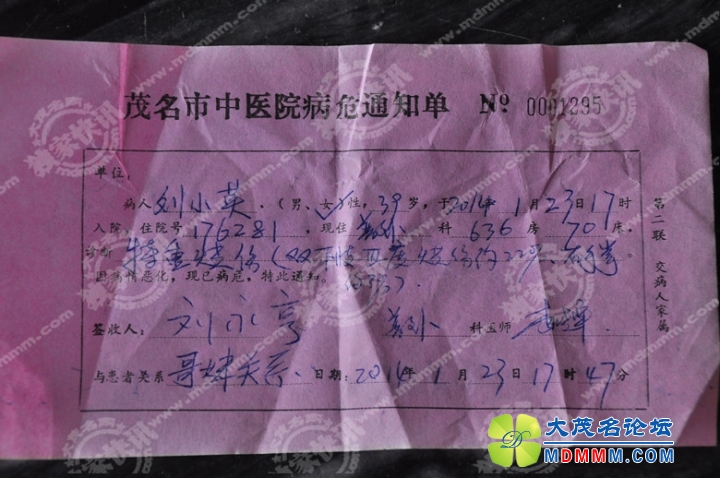 茂名市中医院病危通知单 Nº 0001295
单位:
病人 刘小英 . (男、女√)性, 39 岁, 于 2014 年 1 月 23 日 17 时
入院, 住院号 176281 , 现住 科 636 房 70 床,
诊断 特重烧伤(双下肢Ⅲ度烧伤约22%、
因病情恶化, 现已病危, 特此通知。
签收人: 刘永亨 科医师
与患者关系 哥妹关系 . 日期: 2014 年 1 月 23 日 17 时 47 分
第二联 交病人家属
大茂名论坛
MDMMM.COM
www.mdmmm.com